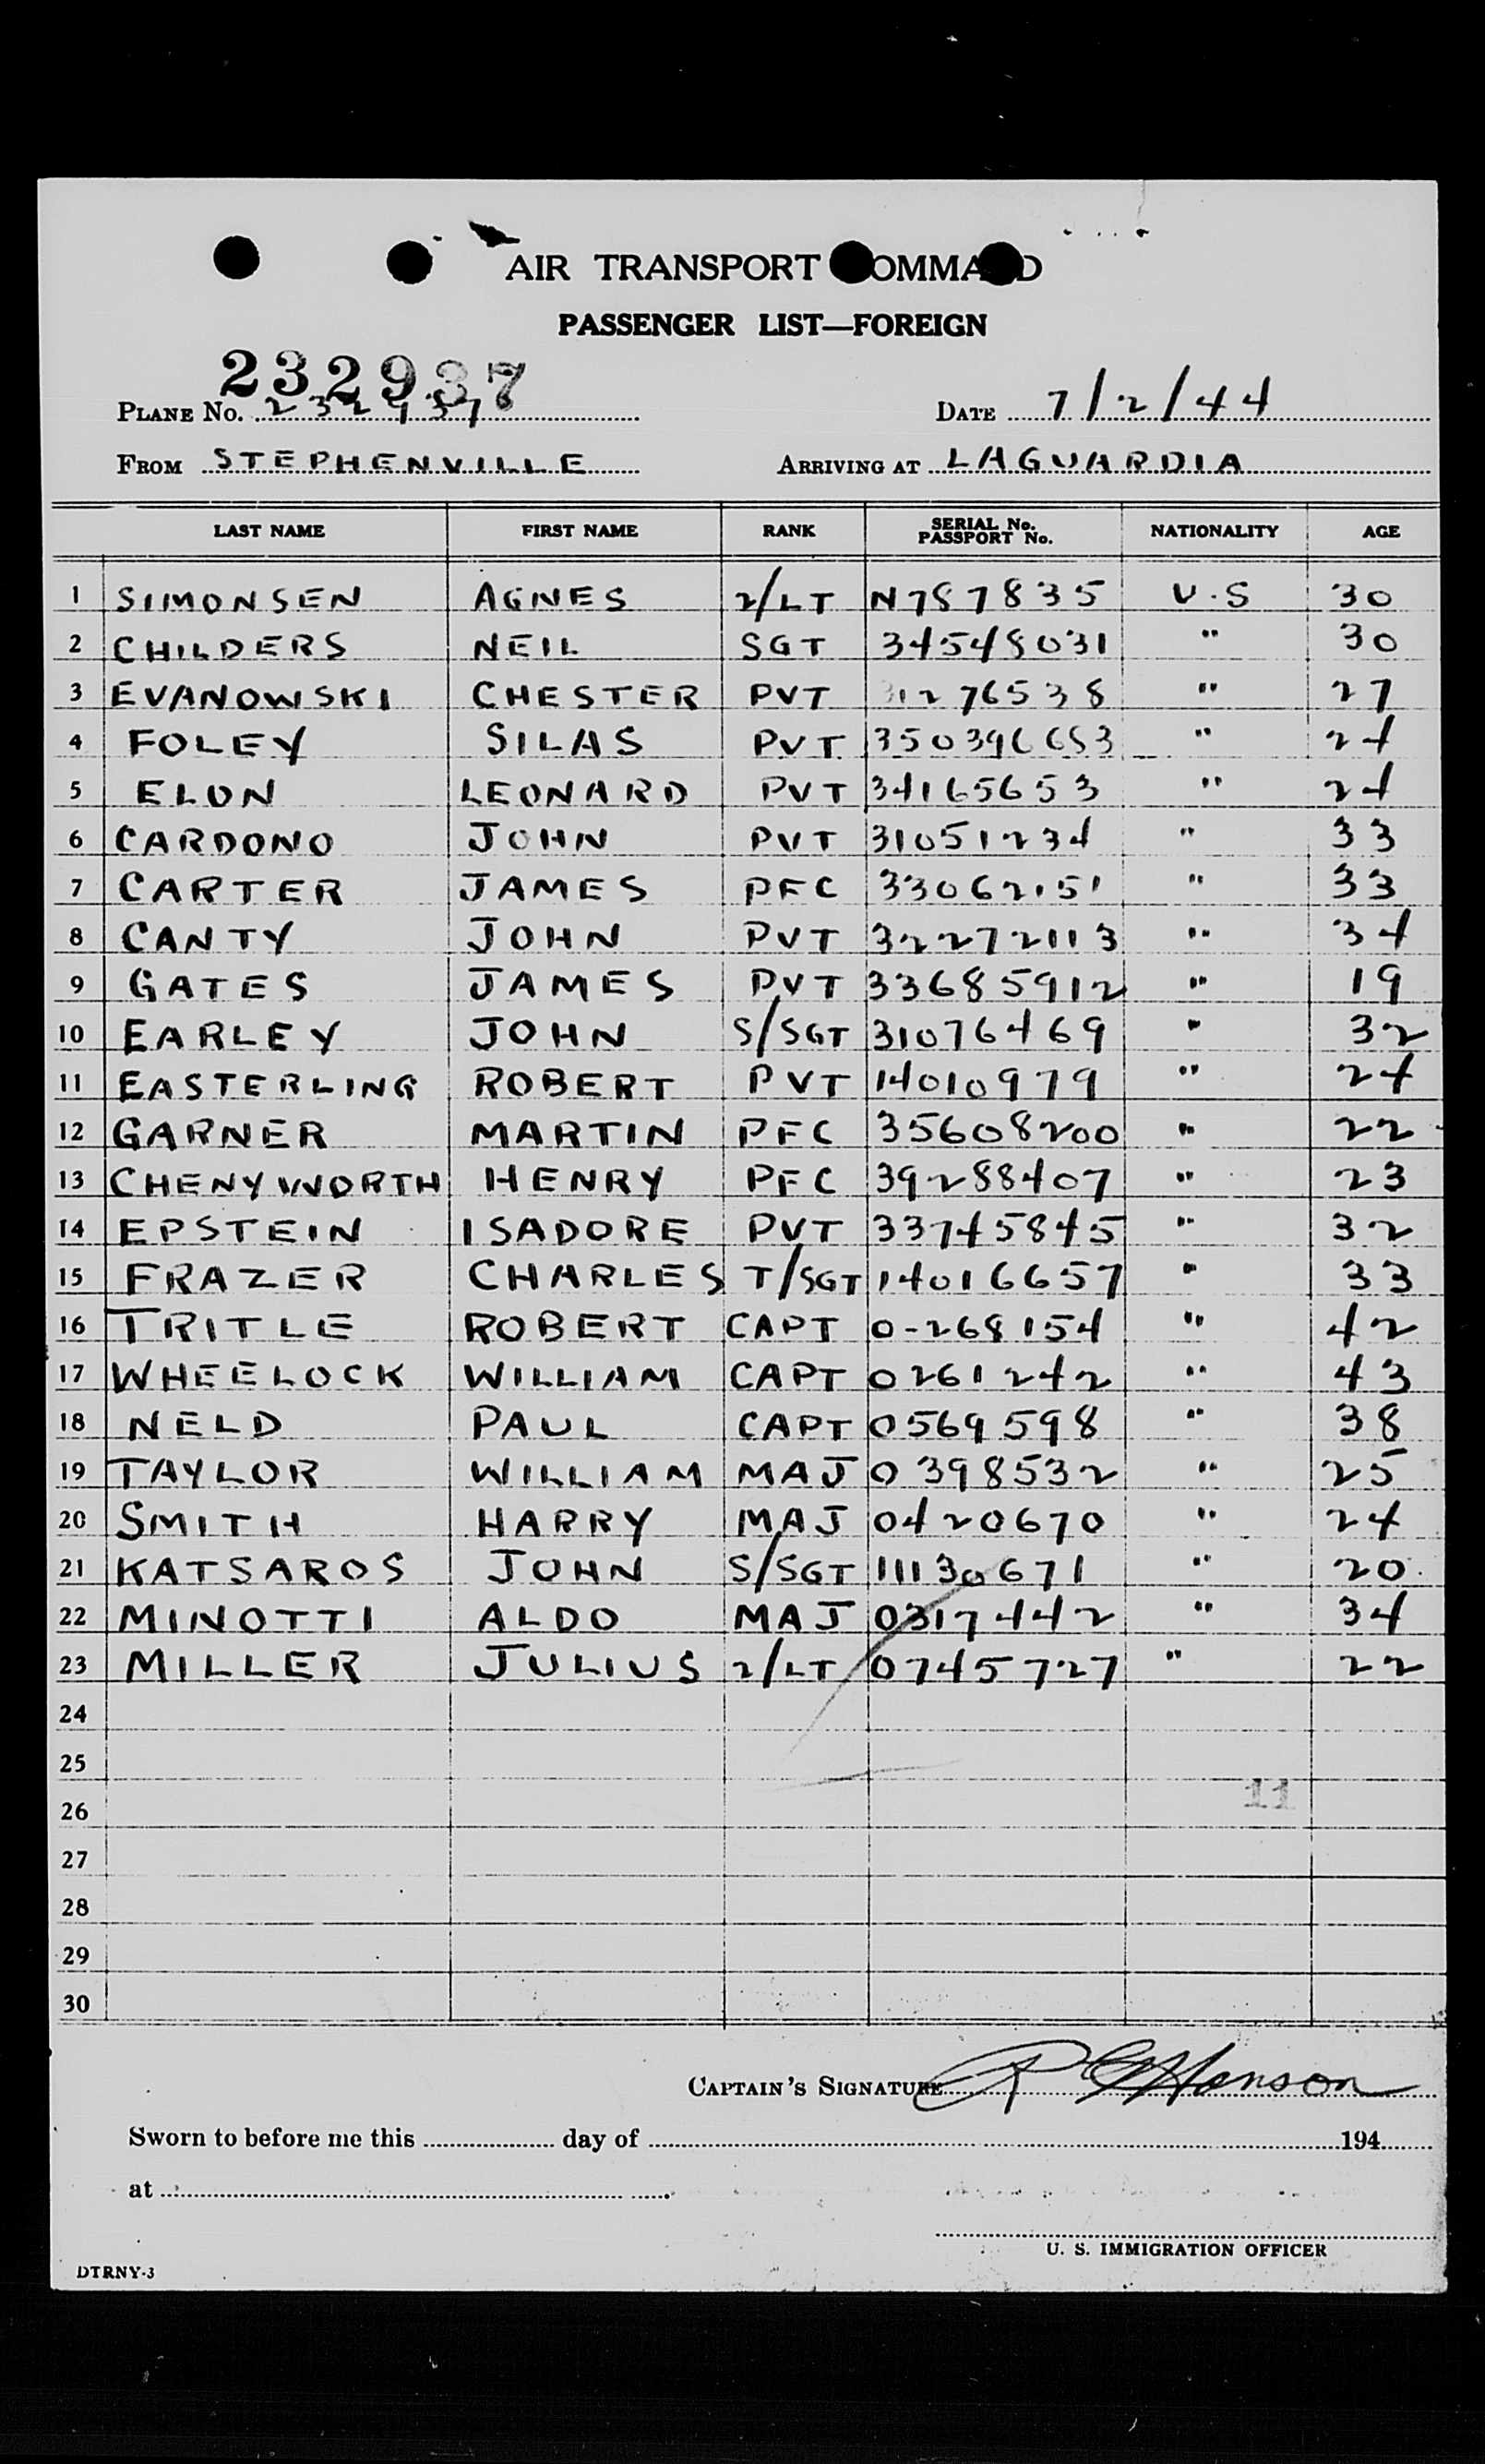 AIR TRANSPORT COMMAND
PASSENGER LIST—FOREIGN
232937
PLANE No. 232937 DATE 7/2/44
FROM STEPHENVILLE ARRIVING AT LAGUARDIA
LAST NAME FIRST NAME RANK SERIAL No. PASSPORT No. NATIONALITY AGE
1 SIMONSEN AGNES 2/LT N787835 U.S 30
2 CHILDERS NEIL SGT 34548031 " 30
3 EVANOWSKI CHESTER PVT 31276538 " 27
4 FOLEY SILAS PVT 350396653 " 24
5 ELON LEONARD PVT 34165653 " 24
6 CARDONO JOHN PVT 31051234 " 33
7 CARTER JAMES PFC 33062151 " 33
8 CANTY JOHN PVT 32272113 " 34
9 GATES JAMES PVT 33685912 " 19
10 EARLEY JOHN S/SGT 31076469 " 32
11 EASTERLING ROBERT PVT 14010979 " 24
12 GARNER MARTIN PFC 35608200 " 22
13 CHENYWORTH HENRY PFC 39288407 " 23
14 EPSTEIN ISADORE PVT 33745845 " 32
15 FRAZER CHARLES T/SGT 14016657 " 33
16 TRITLE ROBERT CAPT 0-268154 " 42
17 WHEELOCK WILLIAM CAPT 0261242 " 43
18 NELD PAUL CAPT 0569598 " 38
19 TAYLOR WILLIAM MAJ 0398532 " 25
20 SMITH HARRY MAJ 0420670 " 24
21 KATSAROS JOHN S/SGT 11130671 " 20
22 MINOTTI ALDO MAJ 0317442 " 34
23 MILLER JULIUS 2/LT 0745727 " 22
24
25
26 11
27
28
29
30
CAPTAIN'S SIGNATURE R E Hanson
Sworn to before me this day of 194
at
U. S. IMMIGRATION OFFICER
DTRNY-3